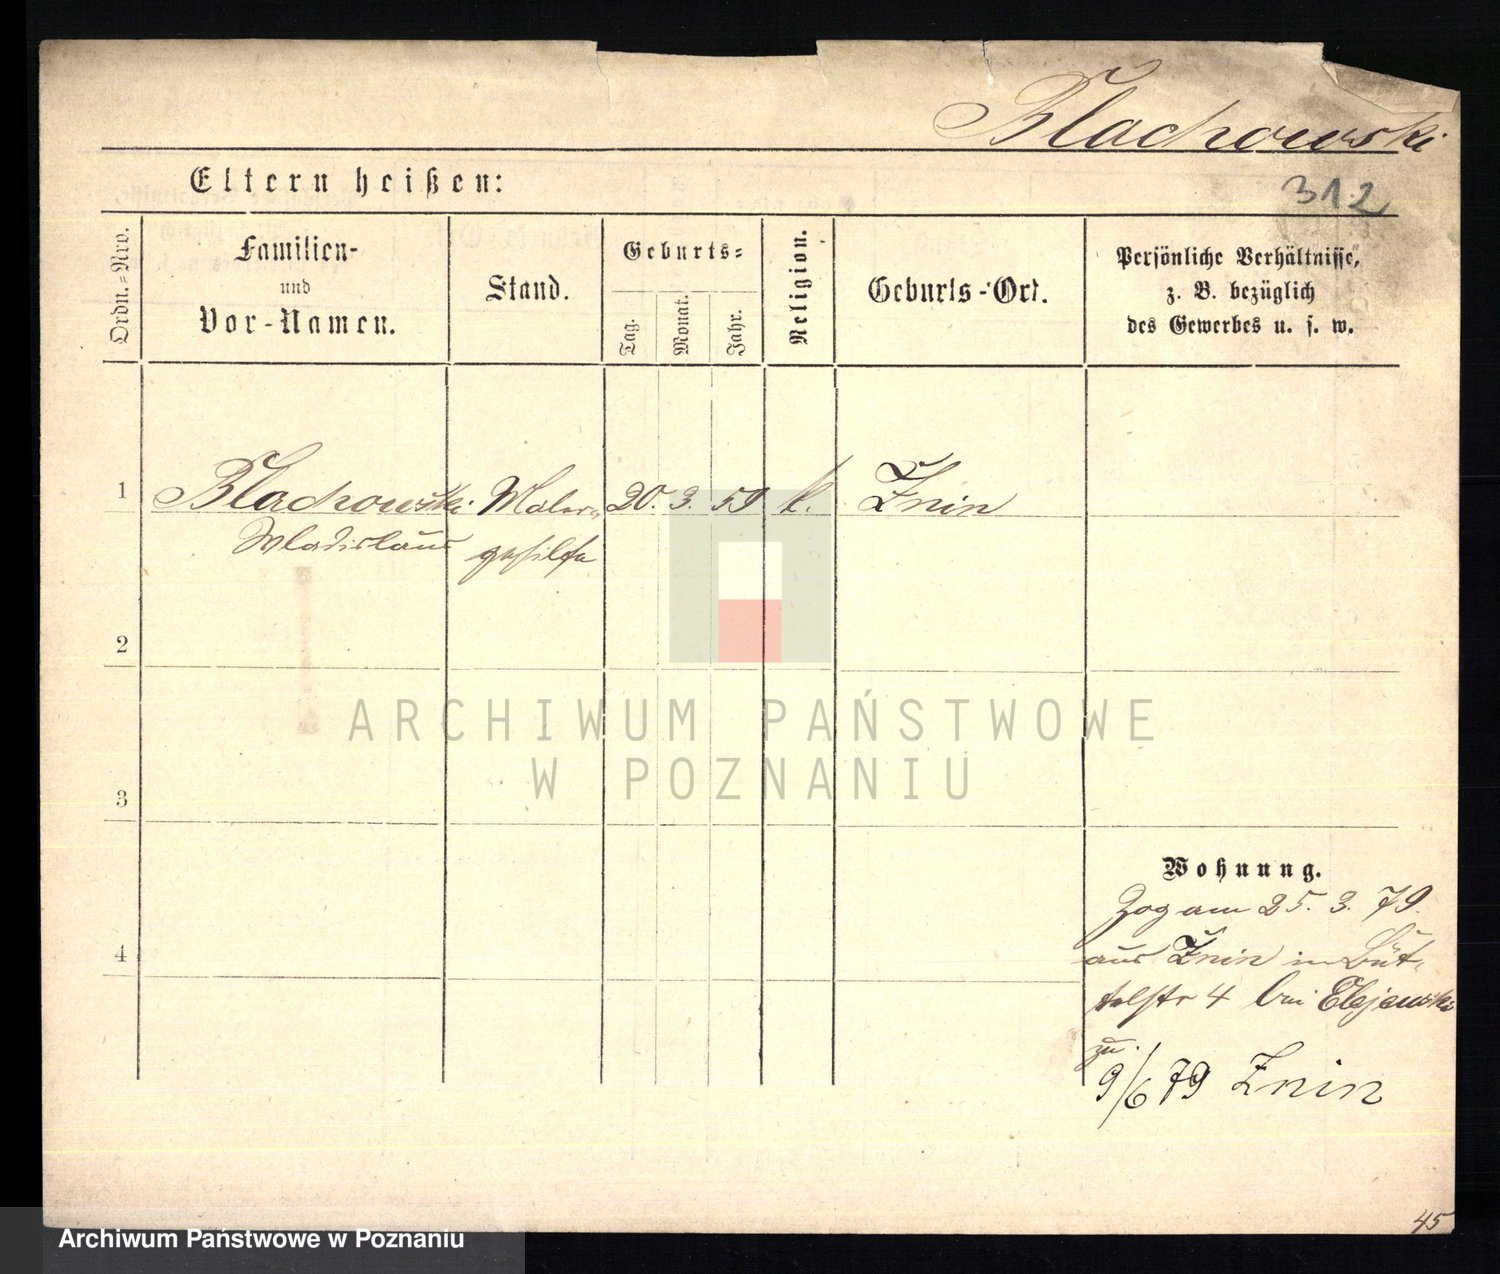 Blachowski
Eltern heißen:
312
Ordn.-Nro.
Familien-
und
Vor-Namen.
Stand.
Geburts-
Tag.
Monat.
Jahr.
Religion.
Geburts-Ort.
Persönliche Verhältnisse,
z. B. bezüglich
des Gewerbes u. s. w.
1 Blachowski Maler- 20. 3. 59 k. Żnin
Wladislaus gehilfe
2
3
4
Wohnung.
Zog am 25. 3. 79.
aus Żnin in Büt-
telstr 4 bei
zu.
9/6 79 Znin
45
ARCHIWUM PAŃSTWOWE
W POZNANIU
Archiwum Państwowe w Poznaniu